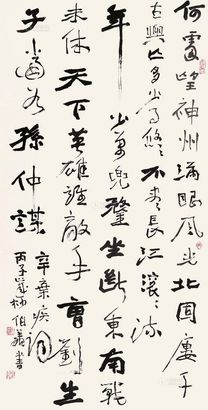 何處望神州滿眼風光北固廔千
古興亡多少事悠〻不盡長江滾〻流
年少萬兜鍪坐斷東南戰
未休天下英雄誰敵手曹劉生
子當如孫仲謀
辛棄疾詞
丙子歲 伯義書